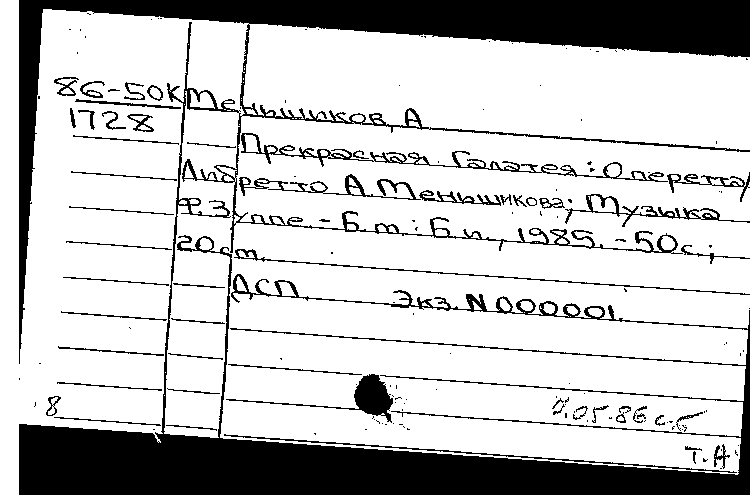 86-50К Меньшиков, А
1728
Прекрасная Галатея: Оперетта/
Либретто А. Меньшикова; Музыка
Ф. Зуппе. - Б.м.: Б.и., 1985. - 50с.;
20см.
ДСП. Экз. N 000001.
7.05.86 с.б
8
Т.А